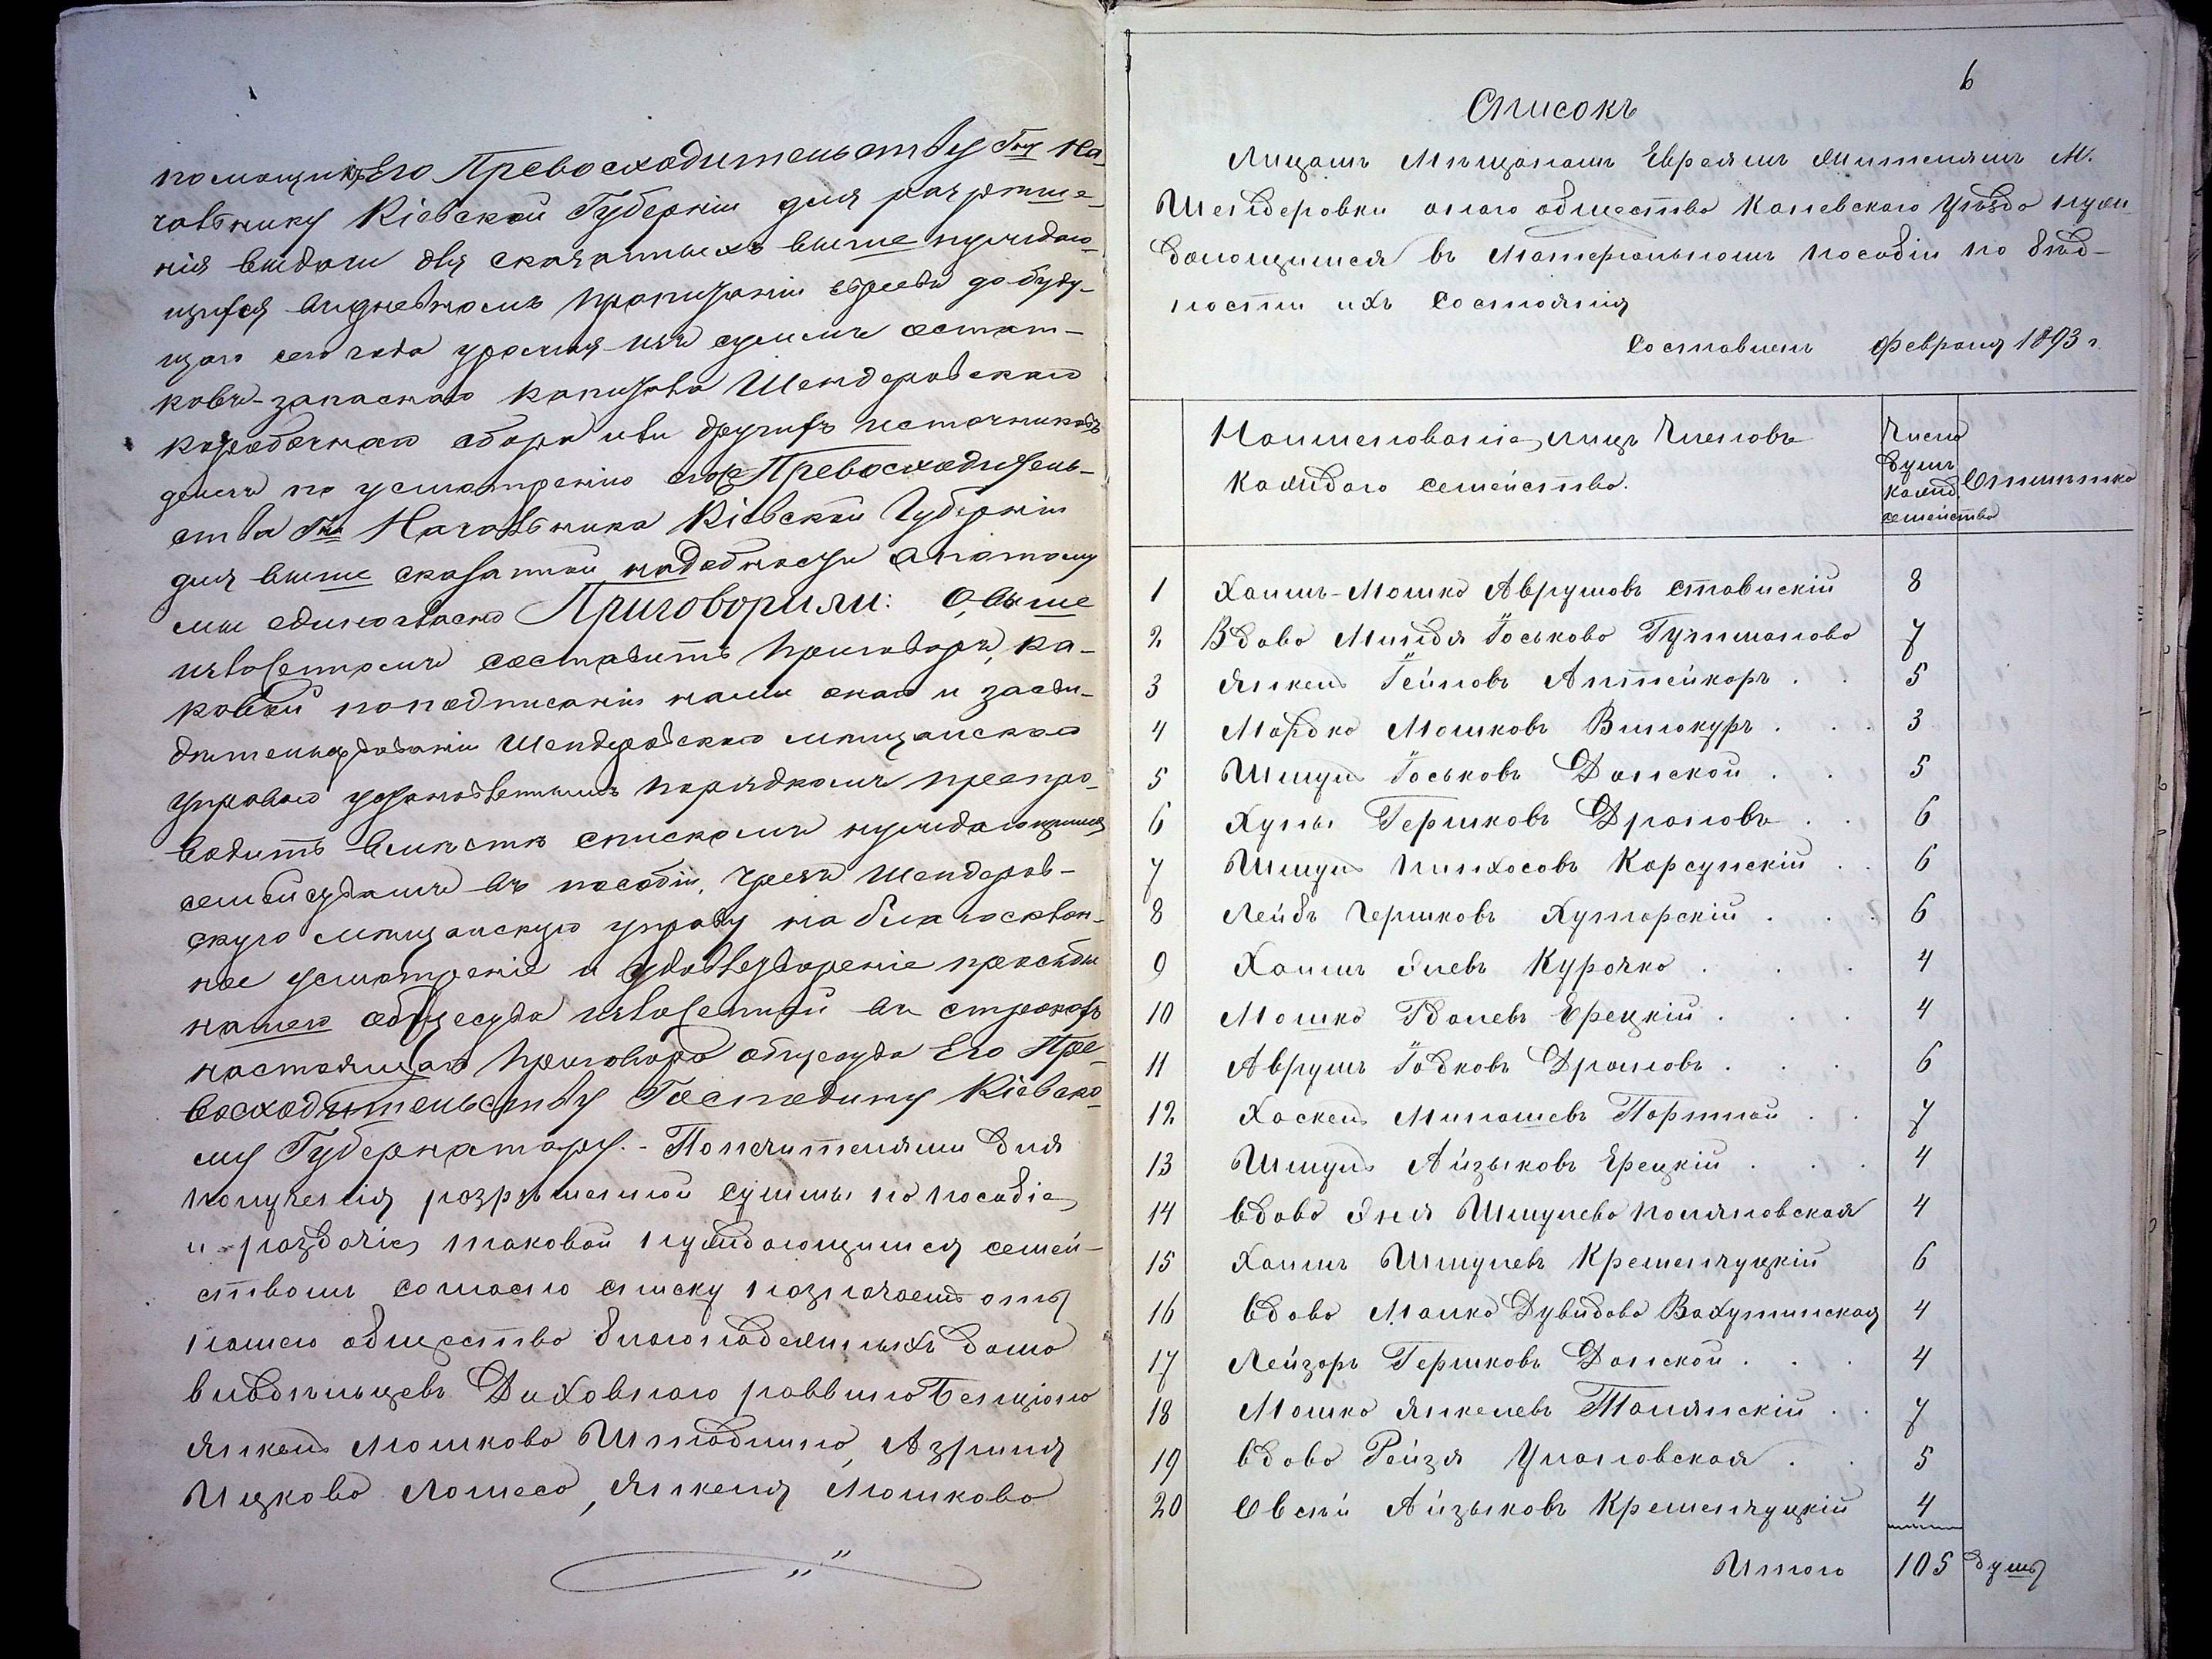 помощник Его Превосходительству Гну На-
чальнику Кіевской Губерніи для разрѣше-
нія выдачи для сказанныхъ выше нуждаю-
щихся
щаго сего года урожая изъ суммъ остат-
ковъ запаснаго капитала Шендеровскаго
коробочнаго сбора или другихъ источниковъ
по усмотренію его Превосходитель-
ства Гна Начальника Кіевской Губерніи
для выше сказанной надобности а потому
мы единогласно Приговорили: О выше
изложенномъ составить приговоръ, ка-
ковой по подписаніи нами онаго и засви-
дѣтельствованіи Шендеровскаго мѣщанскаго
управою установленнымъ порядкомъ препро-
водить вмѣстѣ спискомъ нуждающимся
семействамъ въ пособіи, чрезъ Шендеров-
скую мѣщанскую управу на благосклон-
ное усмотреніе и удовлетвореніе просьбы
нашего общества изложенной въ строкахъ
настоящаго приговора общества Его Пре-
восходительству Господину Кіевско-
му Губернатору. - Попечителями для
полученія разрѣшенной суммы на пособіе
и раздачіе таковой нуждающимся семей-
ствамъ согласно списку назначаемъ отъ
нашего общества благонадежныхъ домо
владѣльцевъ Духовнаго раввина Бенціона
Янкель Мошкова Штодина, Азрила
Ицкова Ломесо, Янкеля Мошкова
6
Списокъ
Лицамъ Мѣщанамъ Евреямъ жителямъ М.
Шендеровки онаго общества Каневскаго уѣзда нуж
дающимся въ Матеріальномъ пособіи по бѣд-
ности ихъ состоянія
Составленъ Февраля 1893 г.
Наименованіе лицъ Членовъ
каждаго семейства.
Число
душъ
кажд. Отмѣтка
семейства
1 Хаимъ-Мошко Аврумовъ Ставискій 8
2 Вдова Миндя Іоськова Гутманова 7
3 Янкель Гейновъ Аптейкоръ . . 5
4 Мордко Мошковъ Винокуръ . . . 3
5 Шмуль Іоськовъ Донской . . 5
6 Хуны Гершковъ Драновъ . . 6
7 Шмуль Пинхосовъ Корсунскій . . 6
8 Лейбъ Гершковъ Хуторскій . . . 6
9 Хаимъ Элевъ Курочко . . . 4
10 Мошко Гдалевъ Ерецкій . . . 4
11 Аврумъ Іодковъ Драновъ . . . 6
12 Хаскель Минашевъ Портной . . 7
13 Шмуль Айзыковъ Ерецкій . . . 4
14 Вдова Эня Шмулева Поляновская 4
15 Хаимъ Шмулевъ Кременчуцкій 6
16 Вдова Малка Дувидова Вахутинская 4
17 Лейзоръ Гершковъ Донской . . . 4
18 Мошко Янкелевъ Талянскій . . 7
19 Вдова Рейзя Улановская . . 5
20 Овсѣй Айзыковъ Кременчуцкій 4
Итого 105 душъ